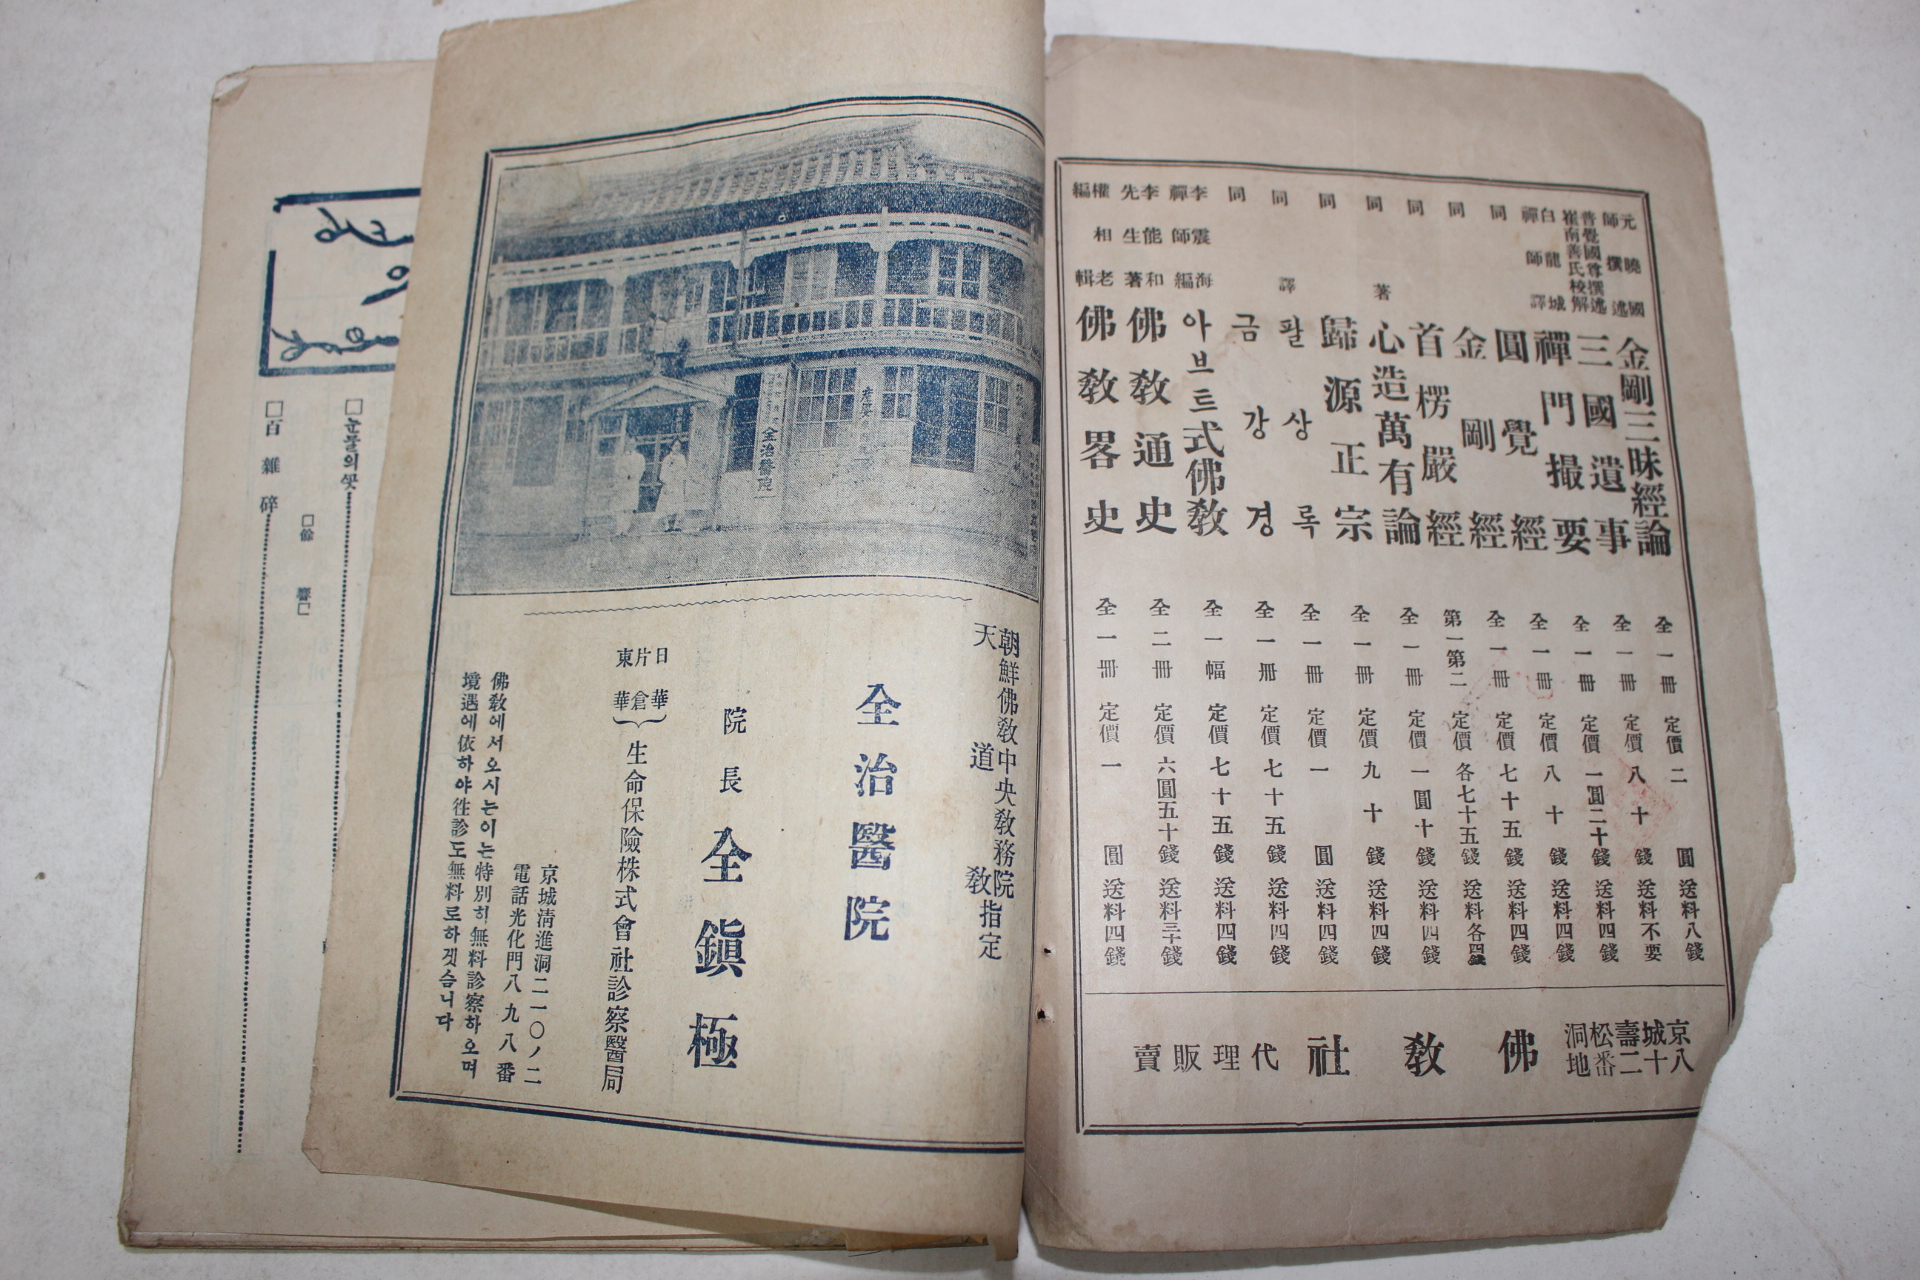 元曉國師撰述
金剛三昧經論
全一冊
定價二圓
送料八錢
普覺國尊撰述
崔南善氏校解
三國遺事
全一冊
定價八十錢
送料不要
白龍城禪師譯
禪門撮要
全一冊
定價一圓二十錢
送料四錢
同
圓覺經
全一冊
定價八十錢
送料四錢
同
金剛經
全一冊
定價七十五錢
送料四錢
同
首楞嚴經
第一第二
定價各七十五錢
送料各四錢
同著
心造萬有論
全一冊
定價一圓十錢
送料四錢
同
歸源正宗
全一冊
定價九十錢
送料四錢
同譯
팔상록
全一冊
定價一圓
送料四錢
同
금강경
全一冊
定價七十五錢
送料四錢
李震海禪師編
아브트式佛敎
全一幅
定價七十五錢
送料四錢
李能和先生著
佛敎通史
全二冊
定價六圓五十錢
送料三十錢
權相老編輯
佛敎畧史
全一冊
定價一圓
送料四錢
京城壽松洞
八十二番地
佛敎社
代理販賣
朝鮮佛敎中央敎務院指定
天道敎
全治醫院
院長 全鎭極
日華
片倉
東華
生命保險株式會社診察醫局
京城淸進洞二一〇ノ二
電話光化門八九八番
佛敎에서오시는이는特別히無料診察하오며
境遇에依하야往診도無料로하겟슴니다
全治醫院
□눈물의
□餘響□
□百雜碎